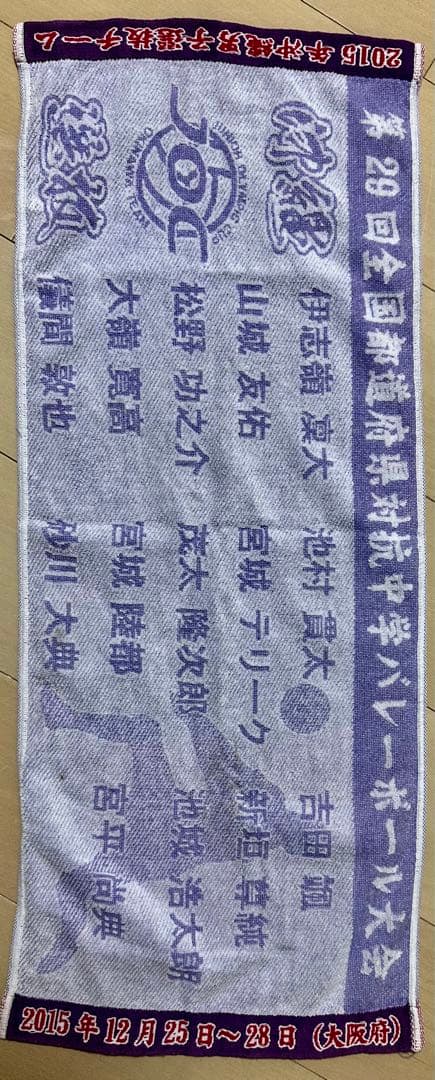 2015年沖縄男子選抜チーム
第29回全国都道府県対抗中学バレーボール大会
沖縄
JOC
JUNIOR OLYMPIC CUP
OKINAWA TEAM
選抜
伊志嶺 凜大 池村 貫太 吉田 颯
山城 友佑 宮城 テリーク 新垣 尊純
松野 功之介 茂太 隆次郎 池城 浩太朗
大嶺 寛高 宮城 陸都 宮平 尚典
儀間 敦也 砂川 大典
2015年12月25日～28日（大阪府）